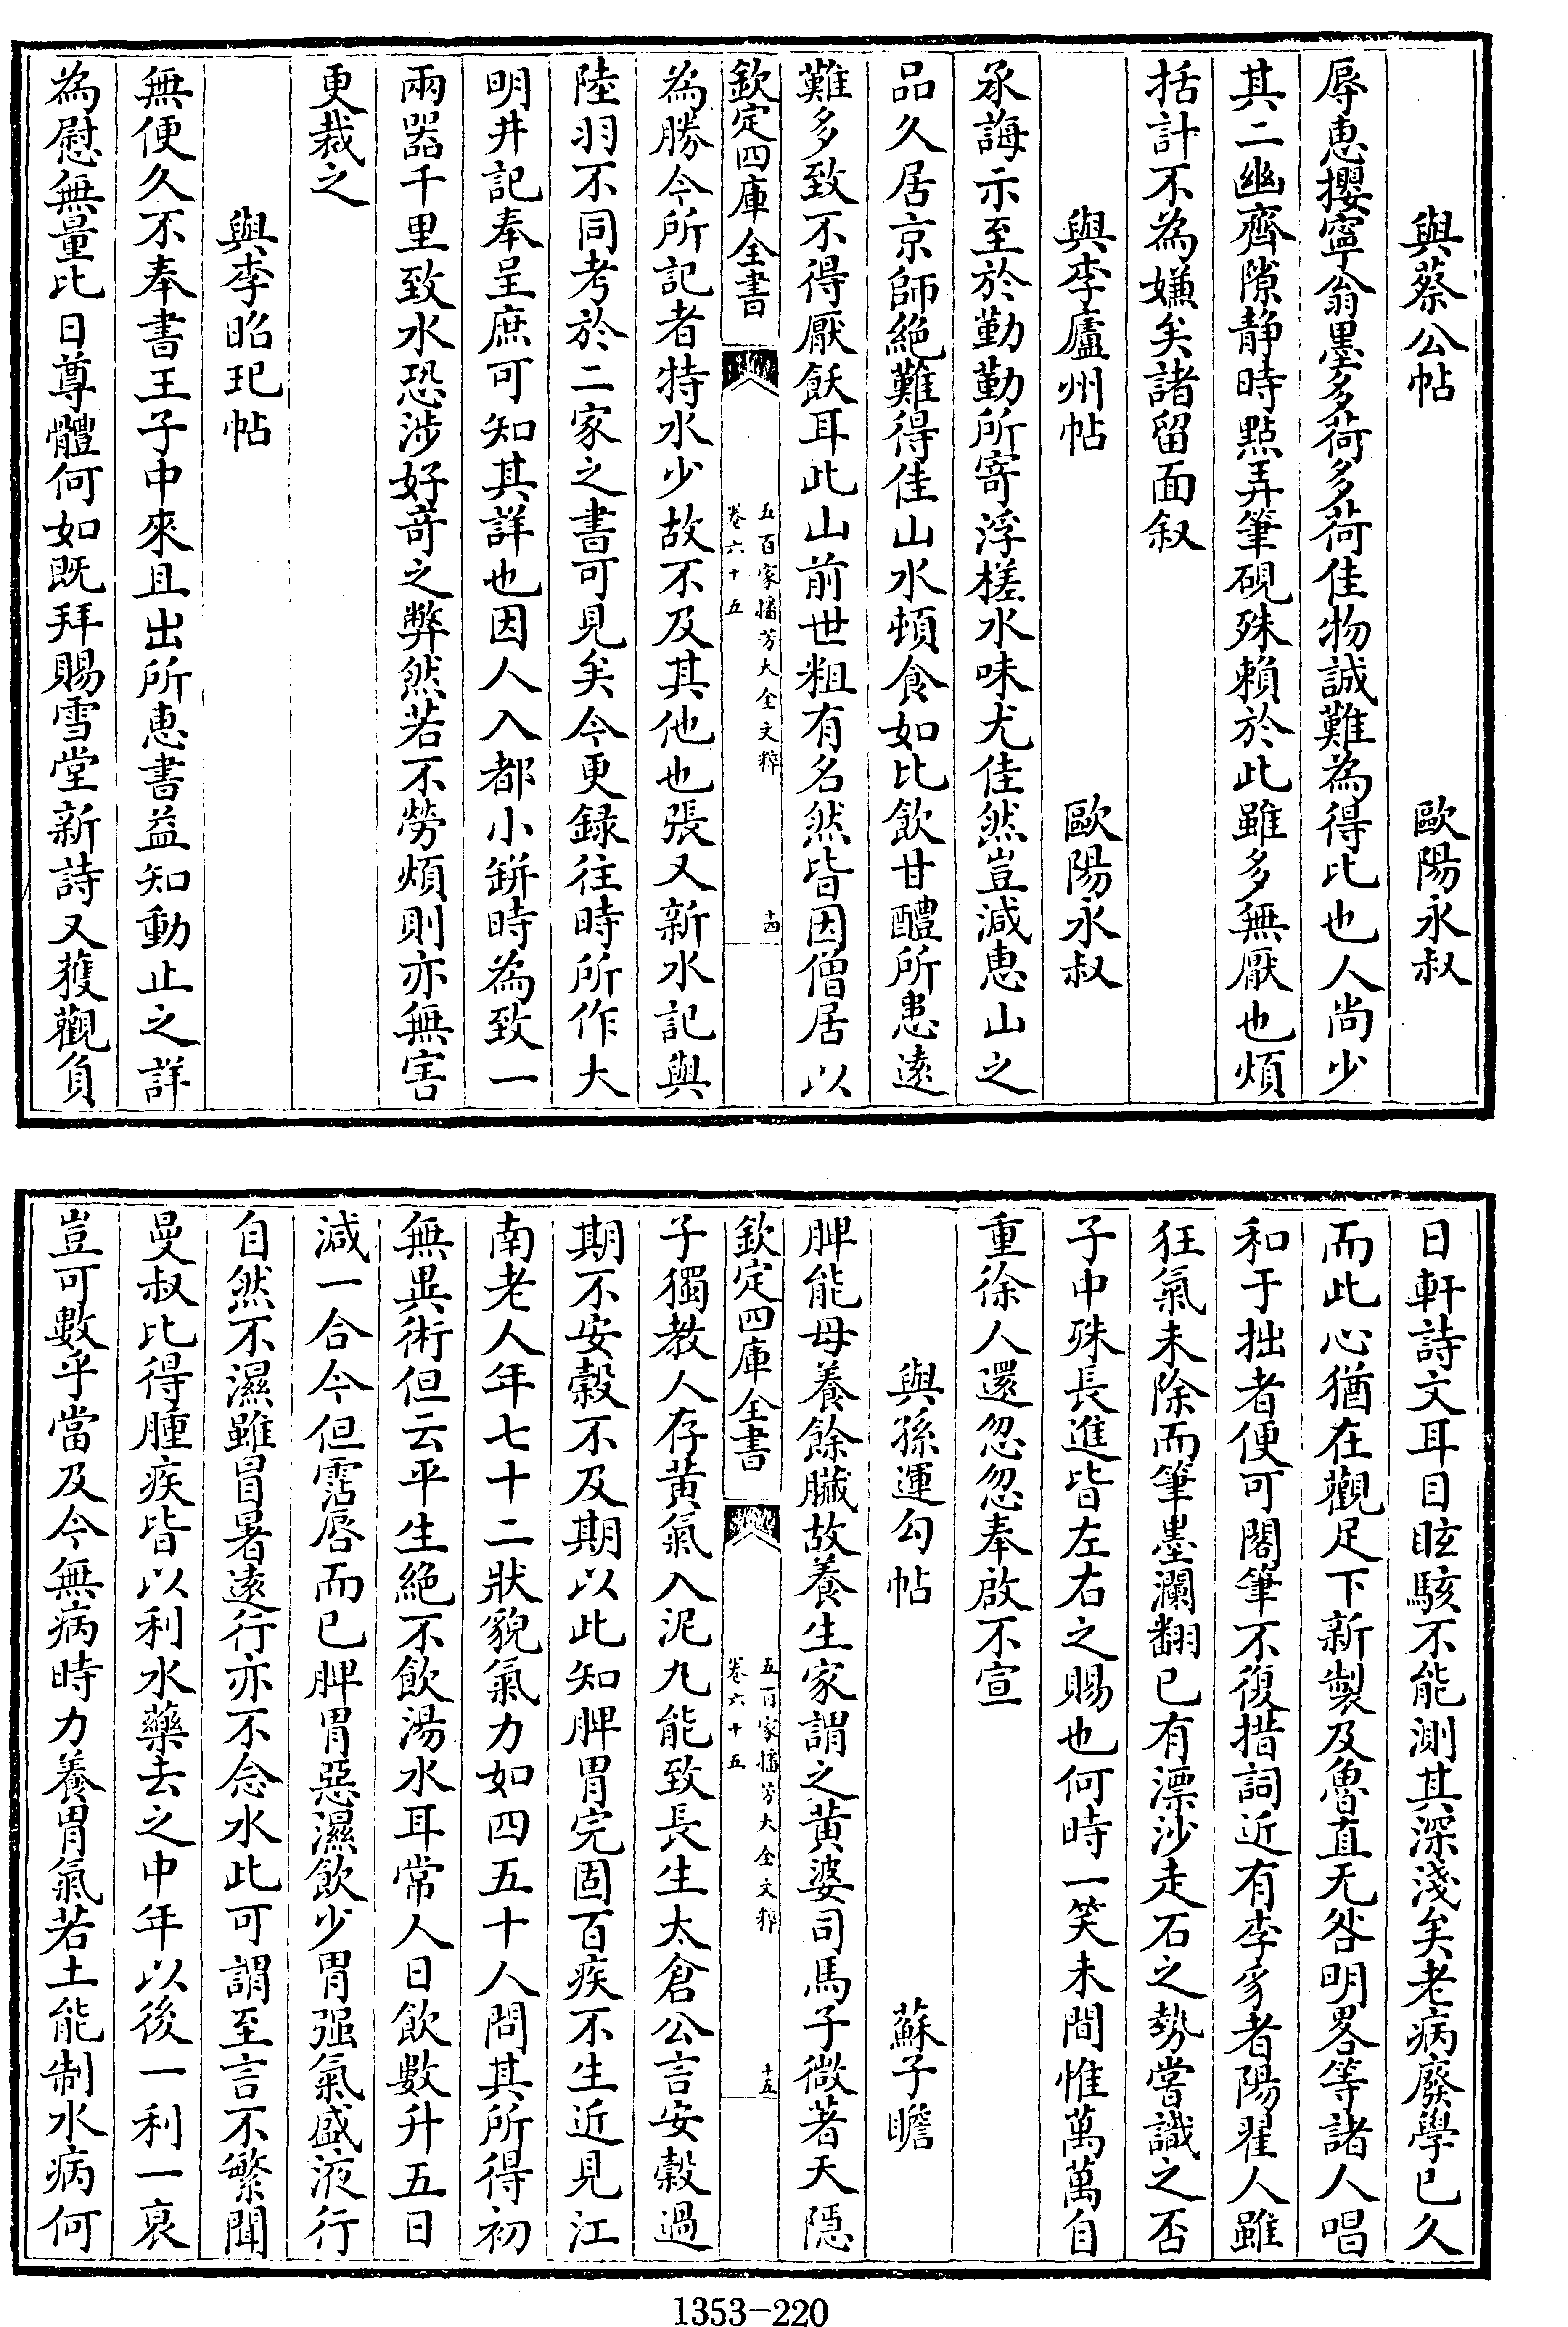 與蔡公帖 歐陽永叔
辱惠攖寧翁墨多荷多荷佳物誠難為得比也人尚少
其二幽齊隙静時點弄筆硯殊賴於此雖多無厭也煩
括計不為嫌矣諸留面叙
與李廬州帖 歐陽永叔
承誨示至於勤勤所寄浮槎水味尤佳然豈減惠山之
品久居京師絶難得佳山水頓食如比飲甘醴所患逺
難多致不得厭飫耳此山前世粗有名然皆因僧居以
欽定四庫全書
五百家播芳大全文粹
卷六十五
十四
為勝今所記者特水少故不及其他也張又新水記與
陸羽不同考於二家之書可見矣今更録往時所作大
明井記奉呈庶可知其詳也因人入都小缾時為致一
兩器千里致水恐涉好奇之弊然若不勞煩則亦無害
更裁之
與李昭玘帖
無便久不奉書王子中來且出所惠書益知動止之詳
為慰無量比日尊體何如既拜賜雪堂新詩又獲觀負
日軒詩文耳目眩駭不能測其深淺矣老病廢學已久
而此心猶在觀足下新製及魯直无咎明畧等諸人唱
和于拙者便可閣筆不復措詞近有李豸者陽翟人雖
狂氣未除而筆墨瀾翻已有漂沙走石之勢嘗識之否
子中殊長進皆左右之賜也何時一笑未間惟萬萬自
重徐人還忽忽奉啟不宣
與孫運勾帖 蘇子瞻
脾能母養餘臟故養生家謂之黄婆司馬子微著天隱
欽定四庫全書
五百家播芳大全文粹
卷六十五
十五
子獨教人存黄氣入泥九能致長生太倉公言安榖過
期不安榖不及期以此知脾胃完固百疾不生近見江
南老人年七十二狀貌氣力如四五十人問其所得初
無異術但云平生絶不飲湯水耳常人日飲數升五日
減一合今但霑唇而已脾胃惡濕飲少胃强氣盛液行
自然不濕雖冒暑逺行亦不念水此可謂至言不繁聞
曼叔比得腫疾皆以利水藥去之中年以後一利一衰
豈可數乎當及今無病時力養胃氣若土能制水病何
1353-220